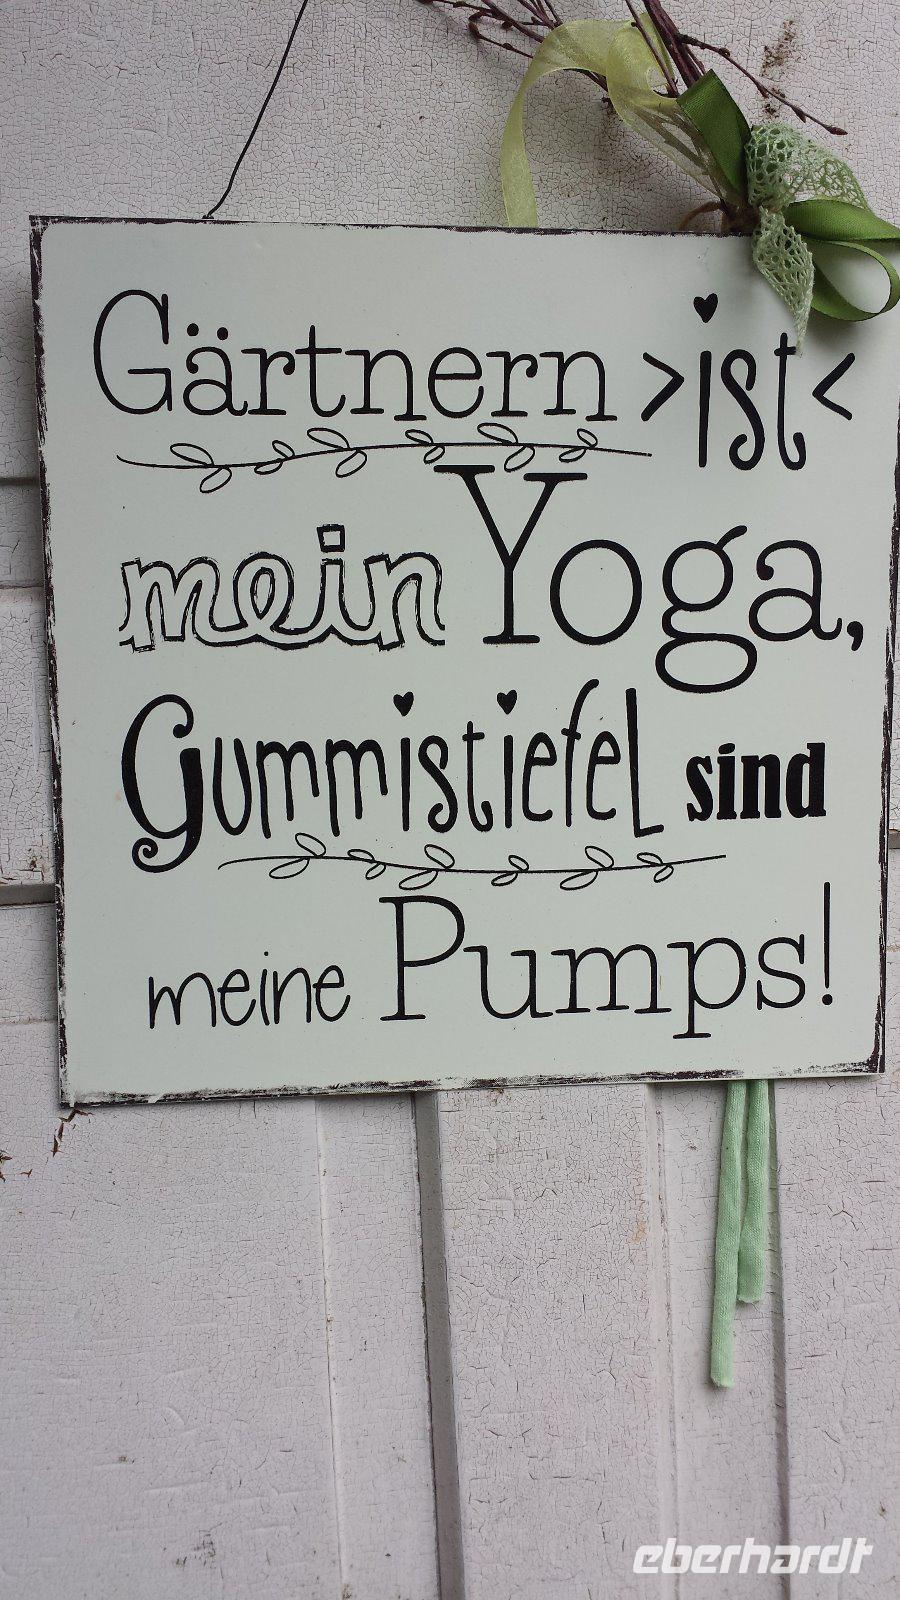 Gärtnern >ist<
mein Yoga,
Gummistiefel sind
meine Pumps!
eberhardt